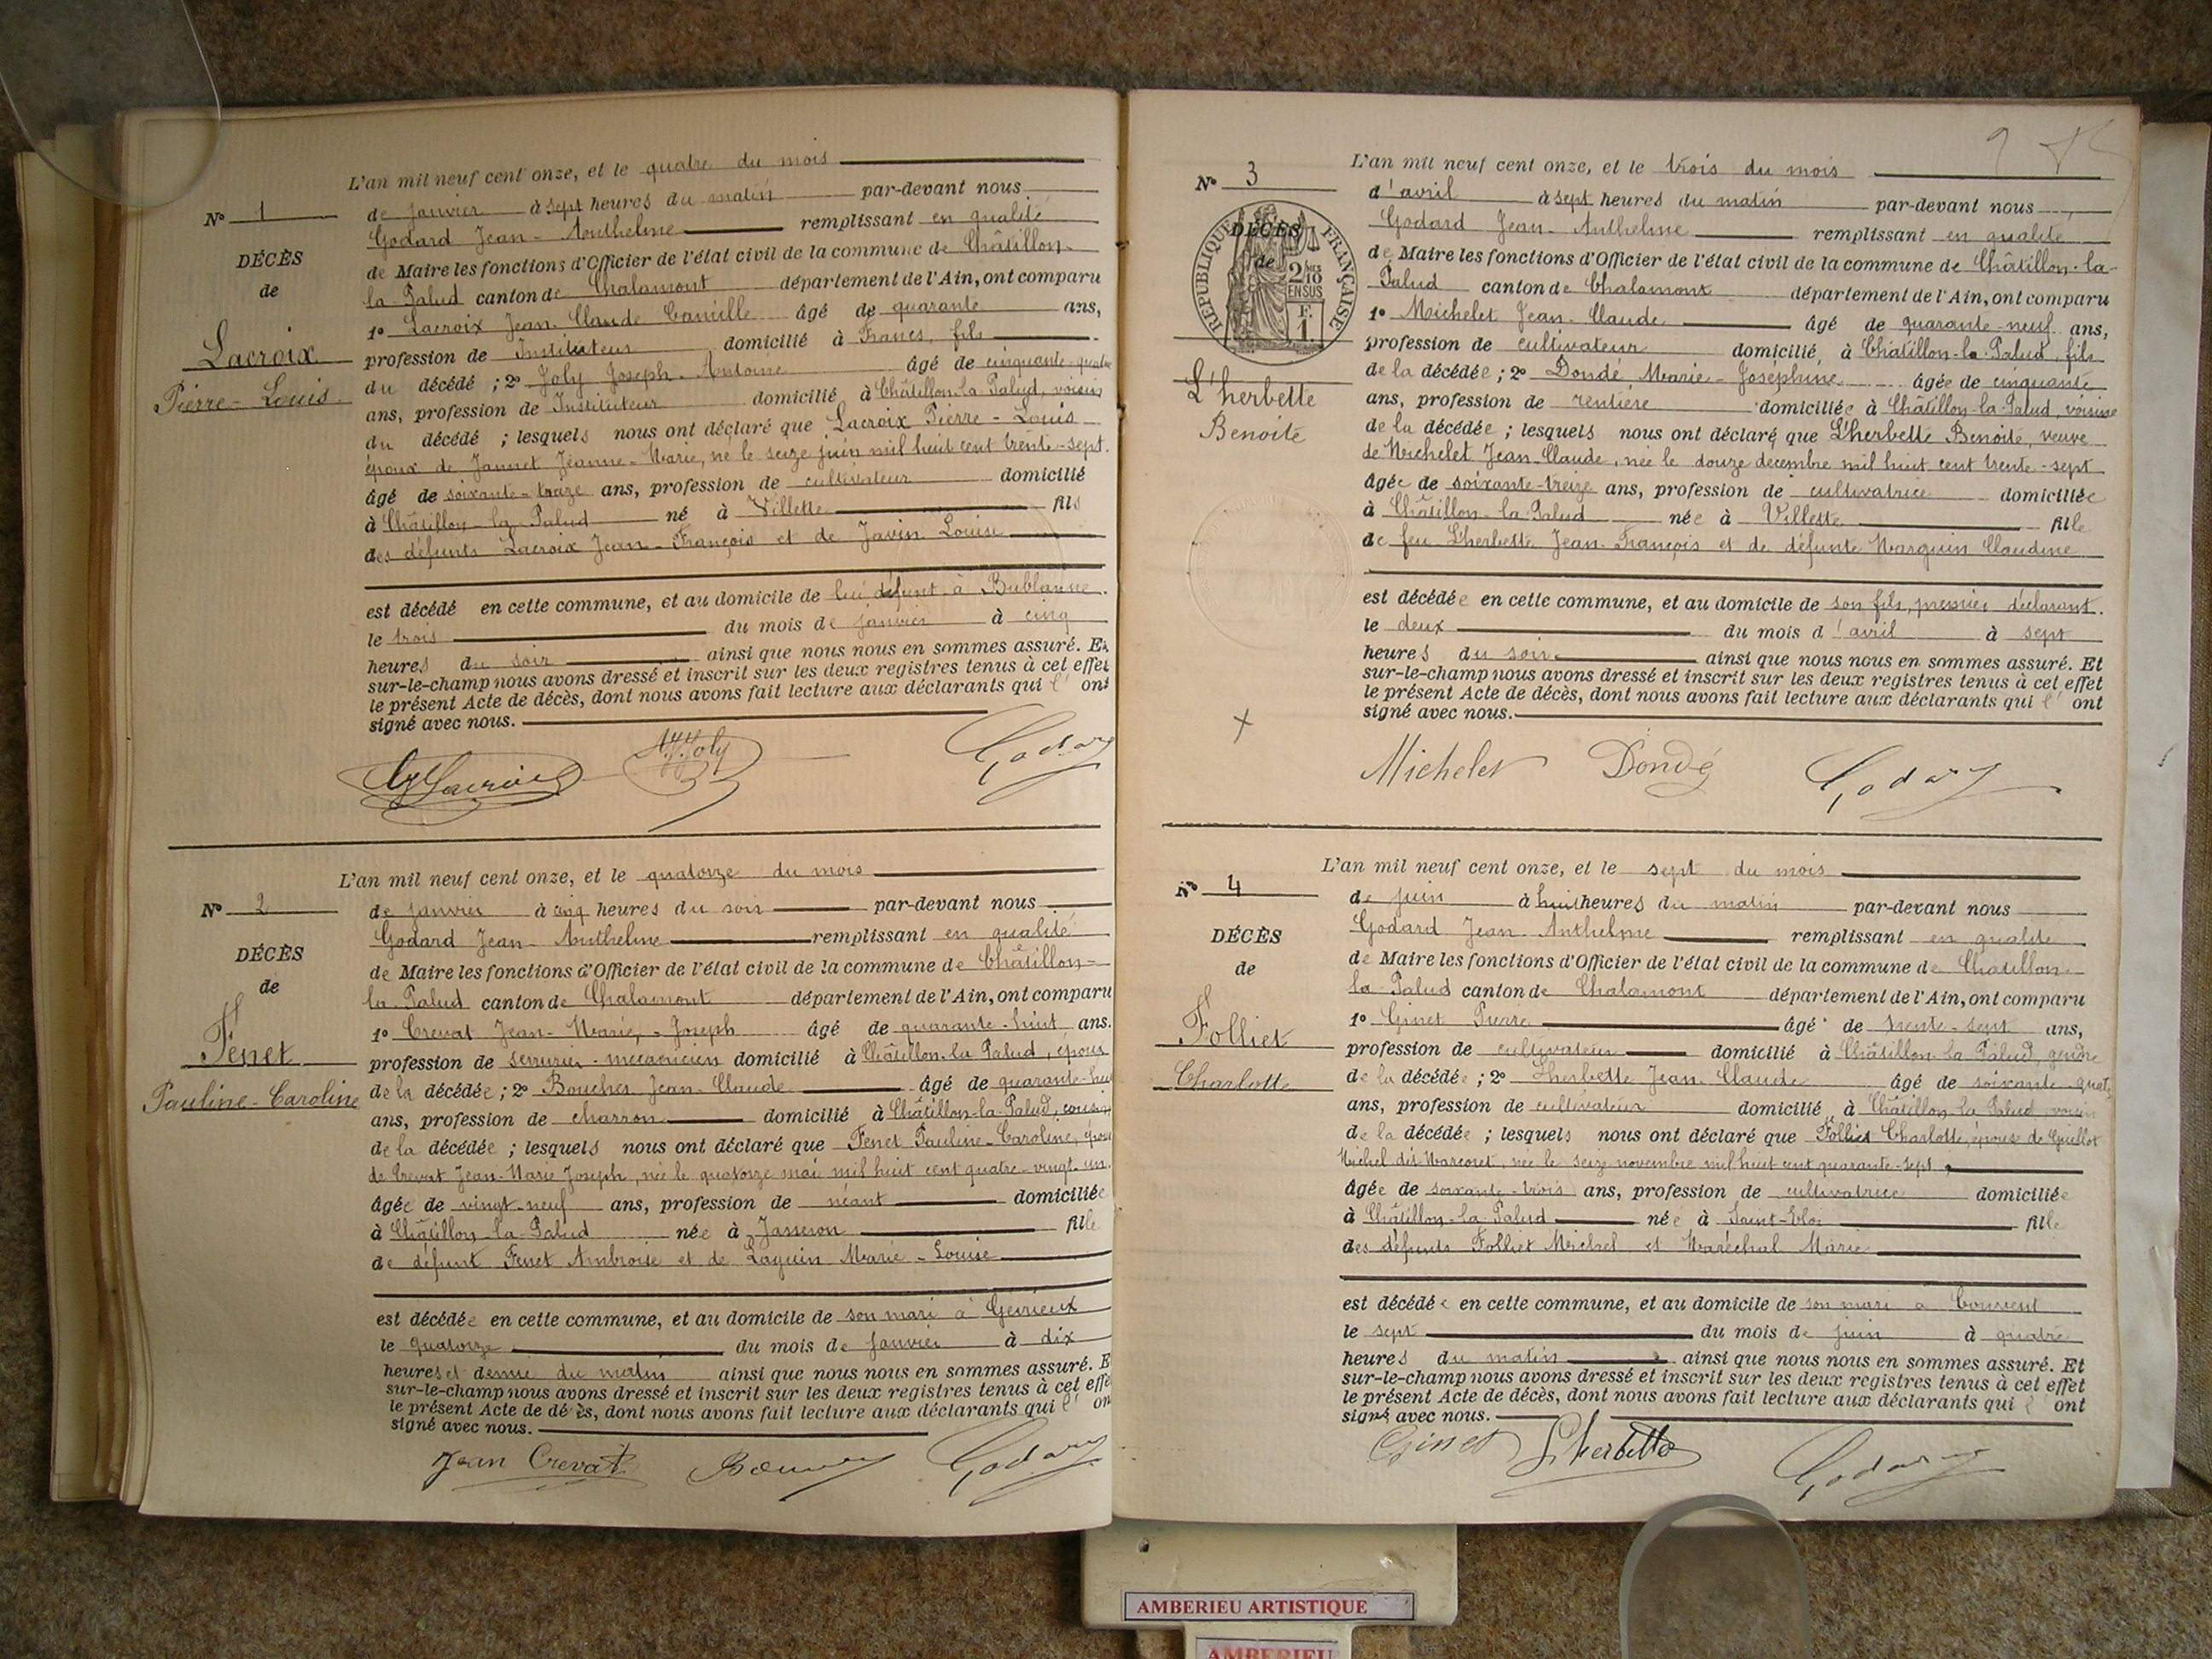 L'an mil neuf cent onze, et le quatre du mois
N° 1
de janvier à sept heures du matin par-devant nous
Godard Jean-Anthelme remplissant en qualité
DÉCÈS
de Maire les fonctions d'Officier de l'état civil de la commune de Châtillon-
de
la Palud canton de Chalamont département de l'Ain, ont comparu
1° Lacroix Jean-Claude Camille âgé de quarante ans,
Lacroix
profession de Instituteur domicilié à Francs, fils
Pierre-Louis
du décédé ; 2° Joly Joseph-Antoine âgé de cinquante-quatre
ans, profession de Instituteur domicilié à Châtillon-la-Palud, voisin
du décédé ; lesquels nous ont déclaré que Lacroix Pierre-Louis
époux de Jannet Jeanne-Marie, né le seize juin mil huit cent trente-sept.
âgé de soixante-treize ans, profession de cultivateur domicilié
à Châtillon-la-Palud né à Villette fils
des défunts Lacroix Jean-François et de Javin Louise
est décédé en cette commune, et au domicile de lui défunt à Bublanne.
le trois du mois de janvier à cinq
heures du soir ainsi que nous nous en sommes assuré. Et
sur-le-champ nous avons dressé et inscrit sur les deux registres tenus à cet effet
le présent Acte de décès, dont nous avons fait lecture aux déclarants qui l' ont
signé avec nous.
Lacroix Joly Godard
L'an mil neuf cent onze, et le quatorze du mois
N° 2
de janvier à cinq heures du soir par-devant nous
Godard Jean-Anthelme remplissant en qualité
DÉCÈS
de Maire les fonctions d'Officier de l'état civil de la commune de Châtillon-
de
la Palud canton de Chalamont département de l'Ain, ont comparu
1° Crevat Jean-Marie-Joseph âgé de quarante-huit ans.
Fenet
profession de serrurier-mécanicien domicilié à Châtillon-la Palud, époux
Pauline-Caroline
de la décédée ; 2° Boucher Jean-Claude âgé de quarante-huit
ans, profession de charron domicilié à Châtillon-la-Palud, cousin
de la décédée ; lesquels nous ont déclaré que Fenet Pauline-Caroline, épouse
de Crevat Jean-Marie Joseph, née le quatorze mai mil huit cent quatre-vingt-un.
âgée de vingt-neuf ans, profession de néant domiciliée
à Châtillon-la-Palud née à Jasseron fille
de défunt Fenet Ambroise et de Laguin Marie-Louise
est décédée en cette commune, et au domicile de son mari à Gévrieux
le quatorze du mois de janvier à dix
heures et demie du matin ainsi que nous nous en sommes assuré. E
sur-le-champ nous avons dressé et inscrit sur les deux registres tenus à cet effe
le présent Acte de décès, dont nous avons fait lecture aux déclarants qui l' on
signé avec nous.
Jean Crevat Godard
L'an mil neuf cent onze, et le trois du mois
N° 3
d'avril à sept heures du matin par-devant nous
DÉCÈS
Godard Jean-Anthelme remplissant en qualité
RÉPUBLIQUE FRANÇAISE
de
2/10 EN SUS
F. 1.
de Maire les fonctions d'Officier de l'état civil de la commune de Châtillon-la-
Palud canton de Chalamont département de l'Ain, ont comparu
1° Michelet Jean-Claude âgé de quarante-neuf ans,
profession de cultivateur domicilié, à Châtillon-la-Palud, fils
L'herbette
de la décédée ; 2° Dondé Marie-Joséphine âgée de cinquante
Benoite
ans, profession de rentière domiciliée à Châtillon-la-Palud, voisine
de la décédée ; lesquels nous ont déclaré que L'herbette Benoite, veuve
de Michelet Jean-Claude, née le douze décembre mil huit cent trente-sept
âgée de soixante-treize ans, profession de cultivatrice domiciliée
à Châtillon-la-Palud née à Villette fille
de feu L'herbette Jean-François et de défunte Marguin Claudine
est décédée en cette commune, et au domicile de son fils, premier déclarant.
le deux du mois d'avril à sept
heures du soir ainsi que nous nous en sommes assuré. Et
sur-le-champ nous avons dressé et inscrit sur les deux registres tenus à cet effet
le présent Acte de décès, dont nous avons fait lecture aux déclarants qui l' ont
signé avec nous.
Michelet Dondé Godard
L'an mil neuf cent onze, et le sept du mois
N° 4
de juin à huit heures du matin par-devant nous
Godard Jean-Anthelme remplissant en qualité
DÉCÈS
de Maire les fonctions d'Officier de l'état civil de la commune de Châtillon-
de
la-Palud canton de Chalamont département de l'Ain, ont comparu
1° Ginet Pierre âgé de trente-sept ans,
Folliet
profession de cultivateur domicilié à Châtillon-la Palud, gendre
Charlotte
de la décédée ; 2° Lherbette Jean-Claude âgé de soixante-quatre
ans, profession de cultivateur domicilié, à Châtillon-la Palud, voisin
de la décédée ; lesquels nous ont déclaré que Folliet Charlotte, épouse de Guillot
Michel dit Marconet, née le seize novembre mil huit cent quarante-sept
âgée de soixante-trois ans, profession de cultivatrice domiciliée
à Châtillon-la-Palud née à Saint-Eloi fille
des défunts Folliet Michel et Maréchal Marie
est décédée en cette commune, et au domicile de son mari à Couvent
le sept du mois de juin à quatre
heures du matin ainsi que nous nous en sommes assuré. Et
sur-le-champ nous avons dressé et inscrit sur les deux registres tenus à cet effet
le présent Acte de décès, dont nous avons fait lecture aux déclarants qui l' ont
signé avec nous.
Ginet Lherbette Godard
AMBERIEU ARTISTIQUE
AMBERIEU